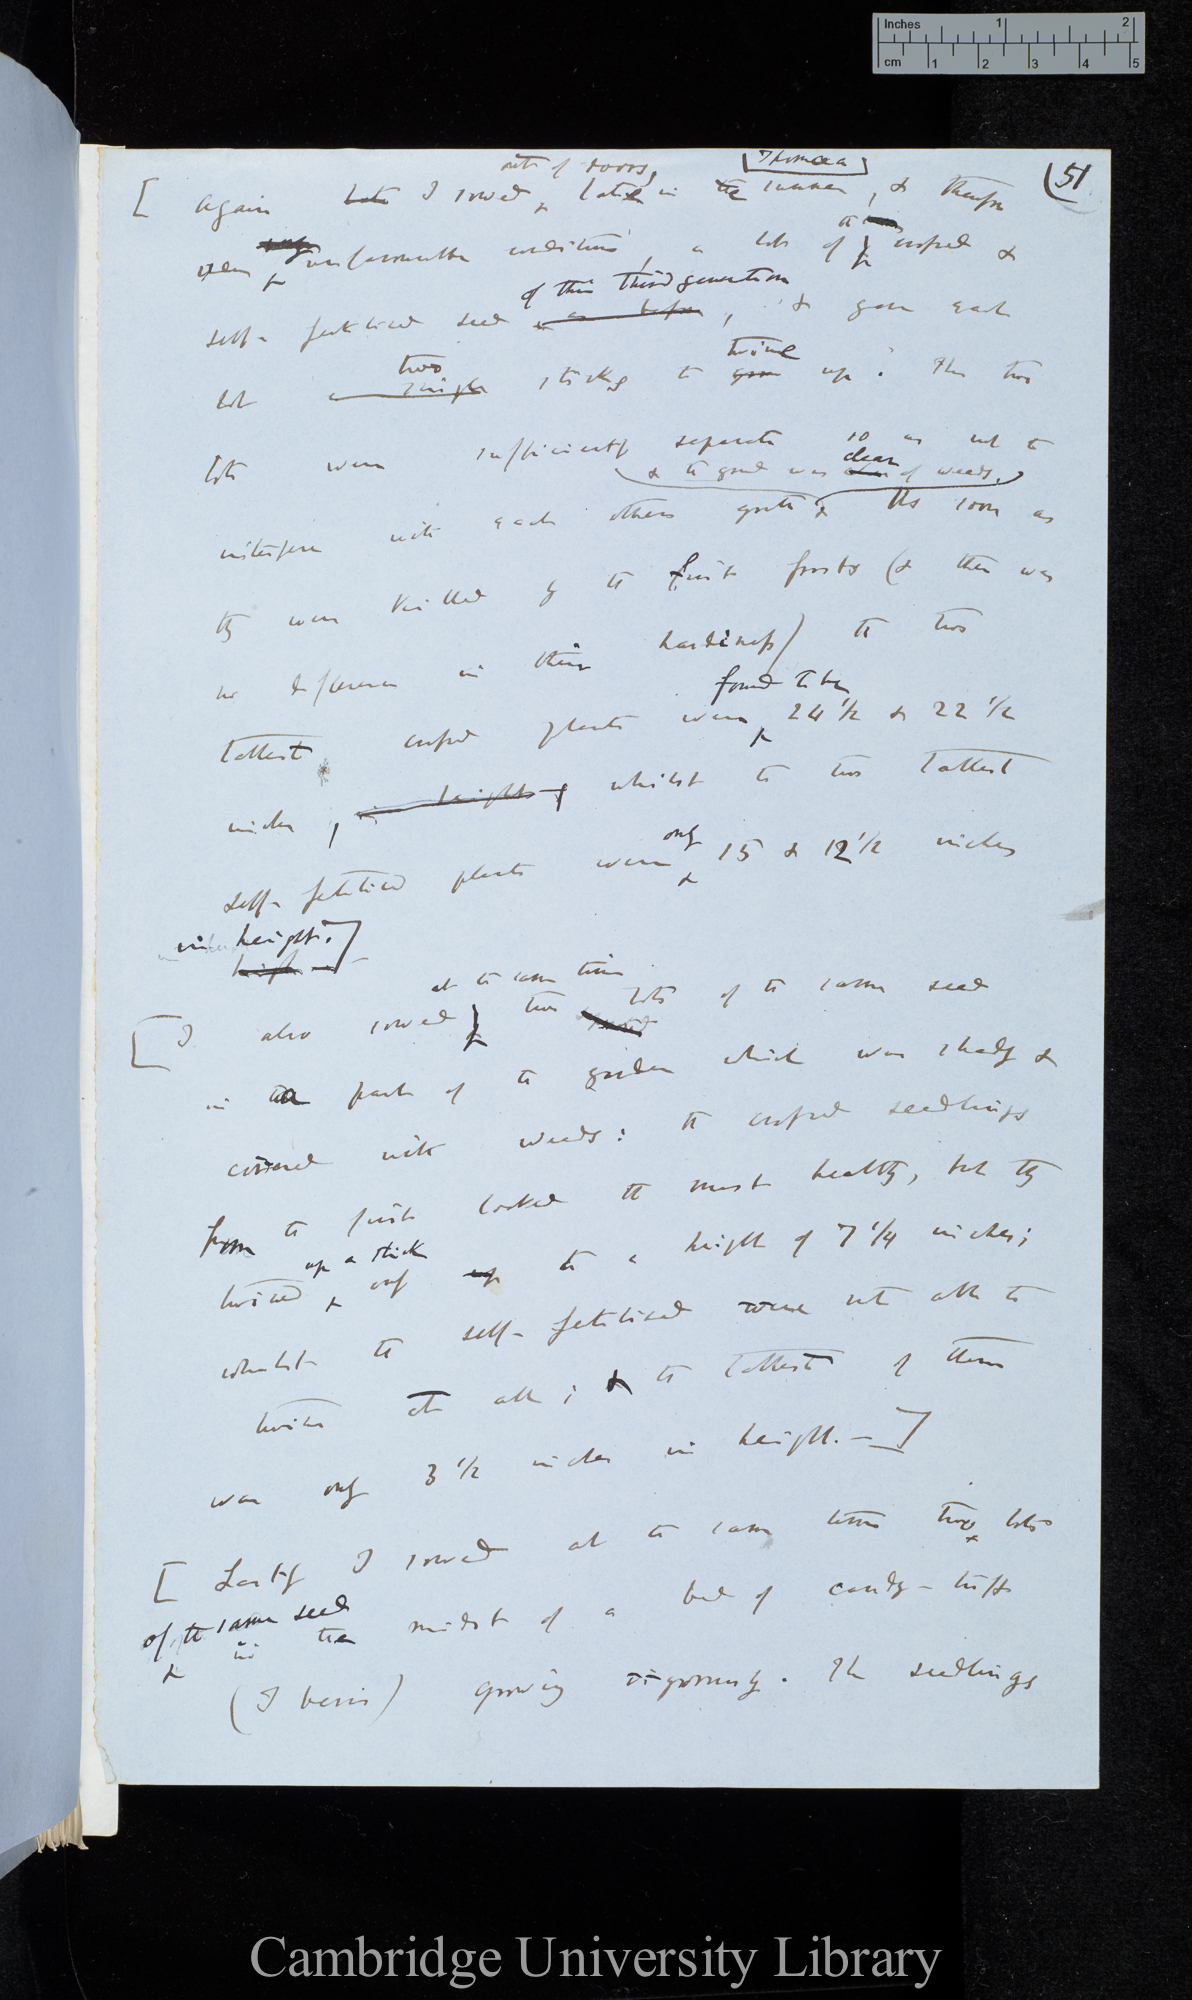 Inches 1 2
cm 1 2 3 4 5
[Ipomœa] (51
out of doors,
[ Again late I sowed late in the summer, & therefore
the
under very unfavourable conditions, a lot of crossed &
of this third generation
self-fertilised seed as before, & gave each
two twine
lot a single sticks to grow up. The two
lots were sufficiently separate so as not to
& the ground was clear of weeds.
interfere with each others growth & As soon as
they were killed by the first frosts (& there was
no difference in their hardiness) the two
found to be
tallest crossed plants were 24 1/2 & 22 1/2
inches, in height, whilst the two tallest
only
self-fertilised plants were 15 & 12 1/2 inches
in height.]
high —
at the same time
[ I also sowed two lots of the same seed
in a part of the garden which was shady &
covered with weeds: the crossed seedlings
from the first looked the most healthy, but they
up a stick
twined only up to a height of 7 1/4 inches;
whilst the self-fertilised were not able to
twine at all; & the tallest of them
was only 3 1/2 inches in height.—]
[ Lastly I sowed at the same time two lots
of the same seed
in the midst of a bed of candy-tuft
(Iberis) growing vigorously. The seedlings
Cambridge University Library